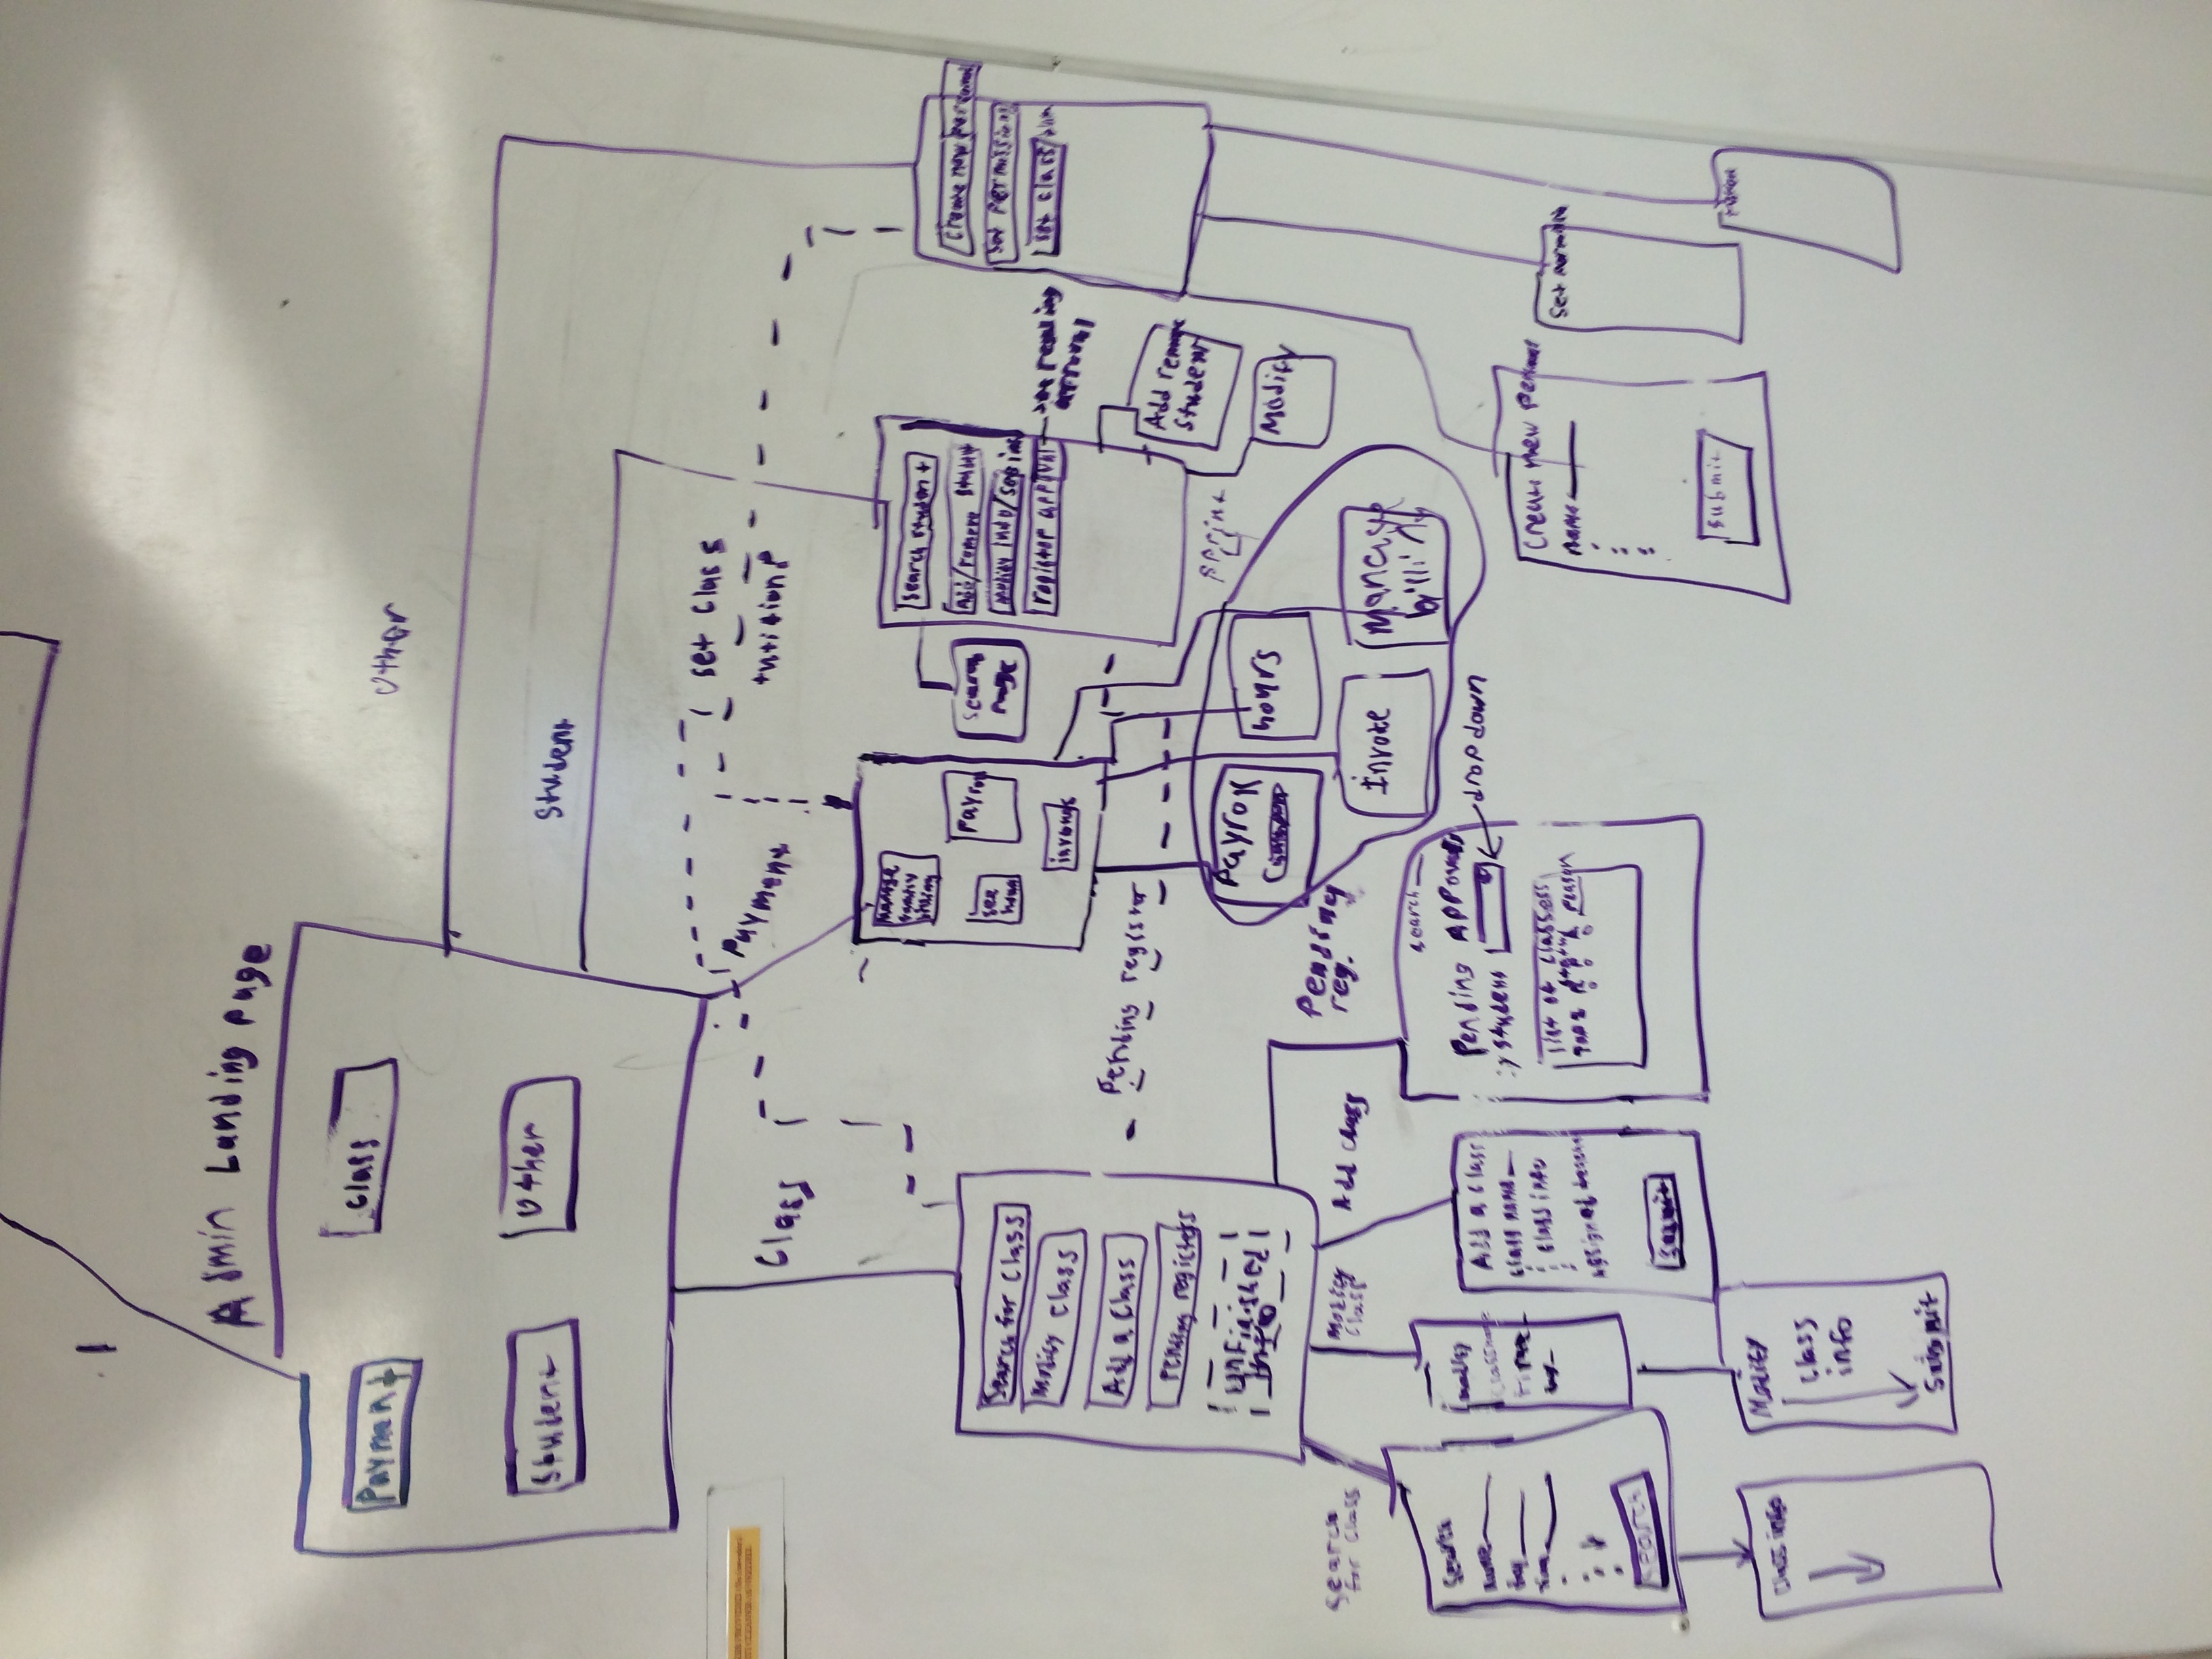 Admin Landing page
Payment
Class
Student
Other
Other
Student
Class
Payment
set Class
tutitions?
Search for Class
Modify Class
Add a Class
Pending registers
Unfinished
Info
Manage
family
billing
Payroll
see
hours
invoices
Search student
Add/remove student
Modify info/
register approval
see pending
approval
Search
page
Create new personnel
Set Permissions
set class/
Pending register
Add remove
Student
Modify
Payroll
hours
Invoke
Manage
billing
sprint
Search
for Class
Modify
Class
Add Class
Pending
reg.
Search
Name
Day
Time
Search
Modify
Class name
Time
Day
Add a Class
Class name
Class info
Assigned teacher
Submit
search
Pending Approvals
By student
dropdown
list of Classess
status
Reason
Create new personnel
name
submit
Set permission
Class info
Modify
Class
info
Submit